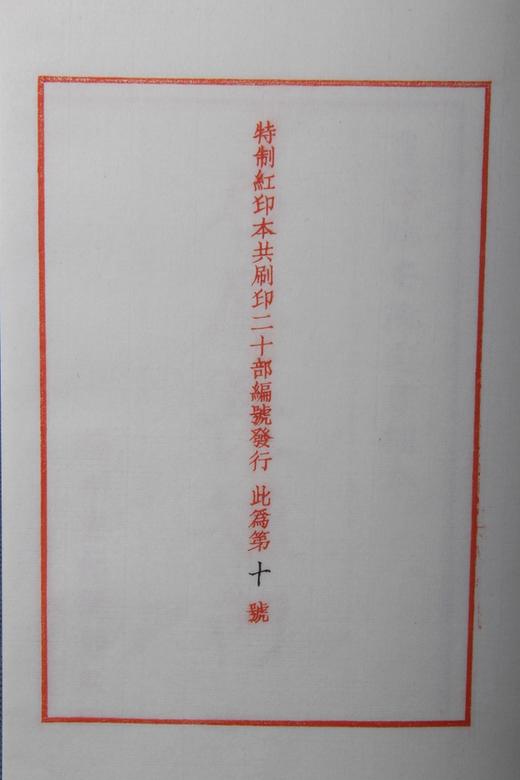 特制紅印本共刷印二十部編號發行 此為第十號